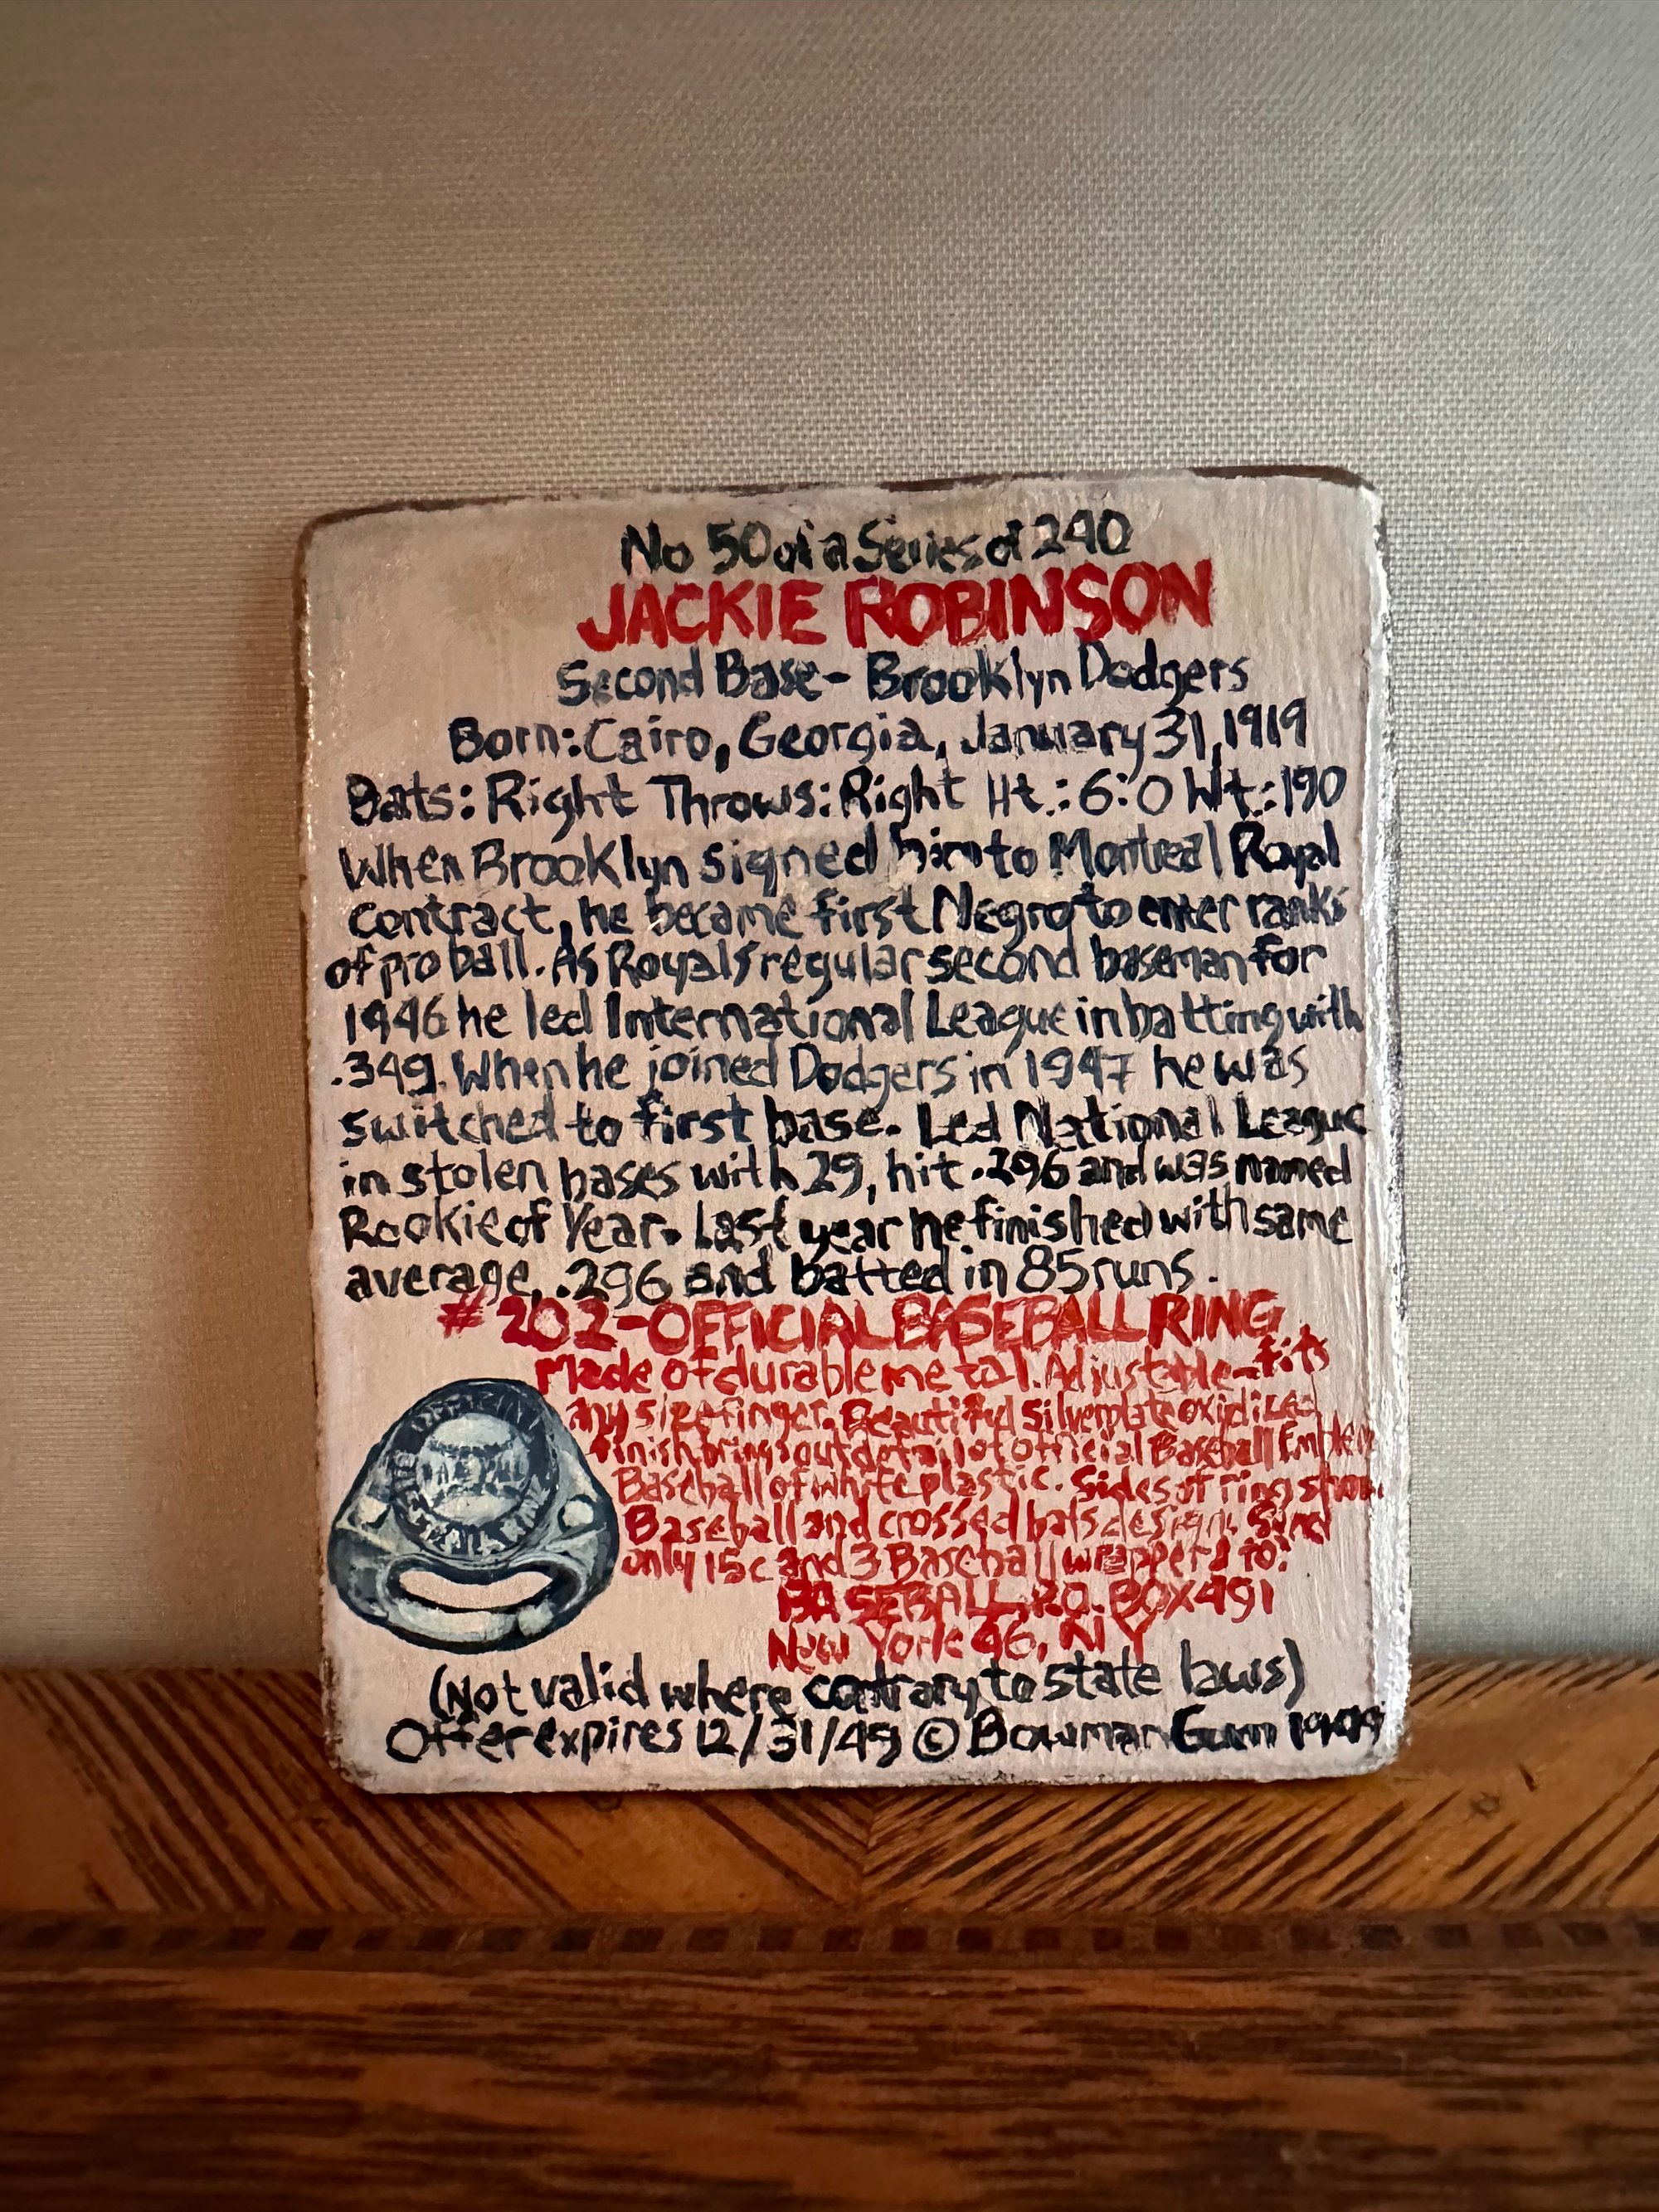 No 50 of a Series of 240
JACKIE ROBINSON
Second Base - Brooklyn Dodgers
Born: Cairo, Georgia, January 31, 1919
Bats: Right Throws: Right Ht.: 6:0 Wt.: 190
When Brooklyn signed him to Montreal Royal
contract, he became first Negro to enter ranks
of pro ball. As Royals' regular second baseman for
1946 he led International League in batting with
.349. When he joined Dodgers in 1947 he was
switched to first base. Led National League
in stolen bases with 29, hit .296 and was named
Rookie of Year. Last year he finished with same
average, .296 and batted in 85 runs.
#202-OFFICIAL BASEBALL RING
Made of durable metal. Adjustable-fits
any size finger. Beautiful silverplate oxidized
finish brings out detail of Official Baseball Emblem
Baseball of white plastic. Sides of ring show
Baseball and crossed bats design. Send
only 15c and 3 Baseball wrappers to:
BASEBALL, P.O. BOX 491
New York 46, N Y
(Not valid where contrary to state laws)
Offer expires 12/31/49 © Bowman Gum 1949